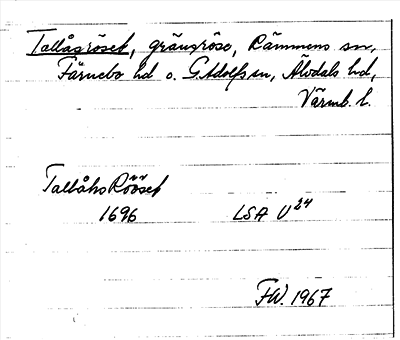 Tallåsröset, gränsröse, Rämmens sn,
Färnebo hd o. G. Adolfs sn, Älvdals hd,
Värml. l.
TallåhsRööset
1696 LSA U 24
FW. 1967